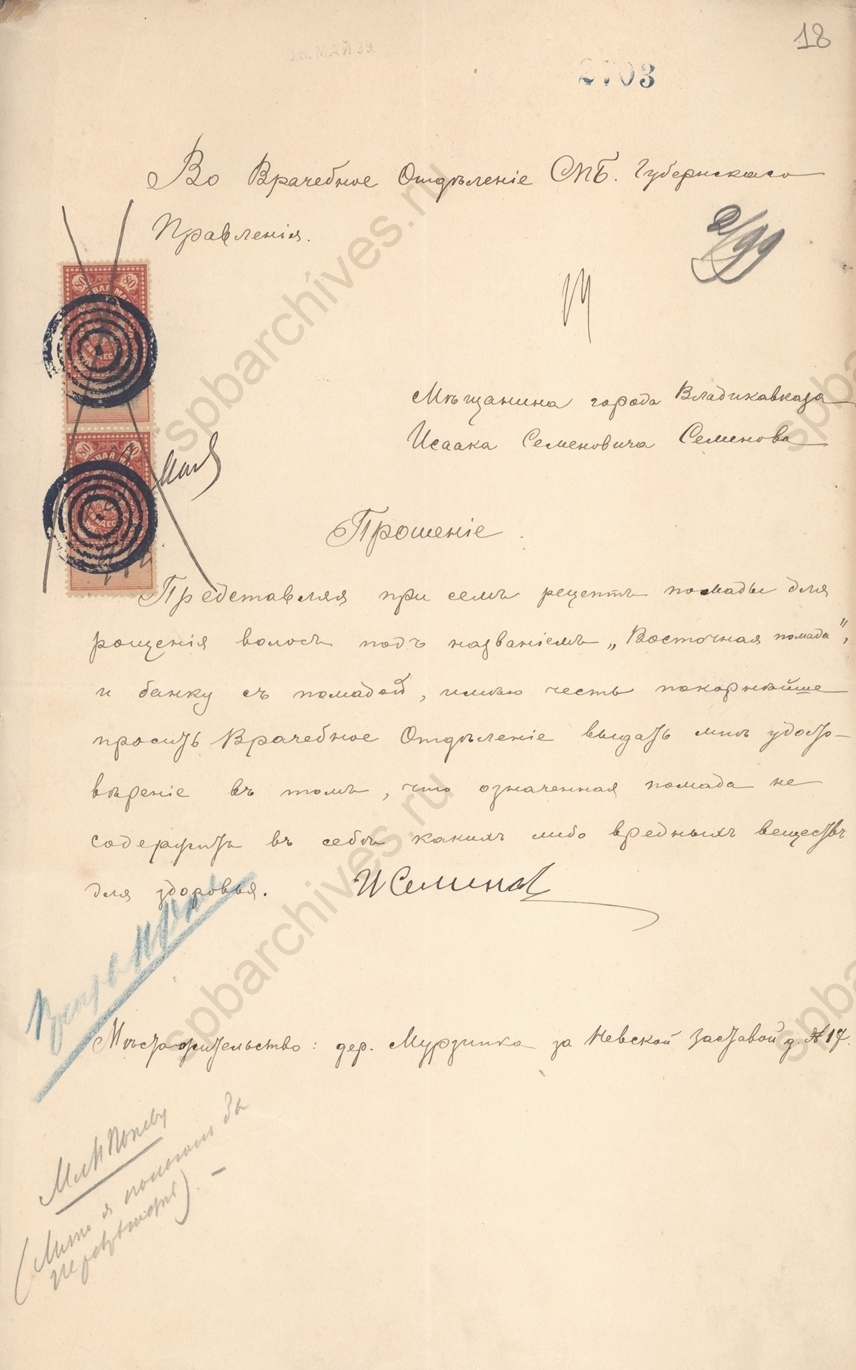 18
МАЙ 99
2703
Во Врачебное Отдѣленіе СПБ. Губернскаго
Правленія.
2/99
80 80
80 80
Мѣщанина города Владикавказа
Исаака Семеновича Семенова
Прошеніе.
Представляя при семъ рецептъ помады для
рощенія волосъ подъ названіемъ „Восточная помада",
и банку съ помадой, имѣю честь покорнѣйше
просить Врачебное Отдѣленіе выдать мнѣ удосто-
вѣреніе въ томъ, что означенная помада не
содержитъ въ себѣ какихъ либо вредныхъ веществъ
для здоровья. И Семенов
Мѣсто жительство: дер. Мурзинка за Невской заставой д. № 17.
spbarchives.ru
spbarchives.ru